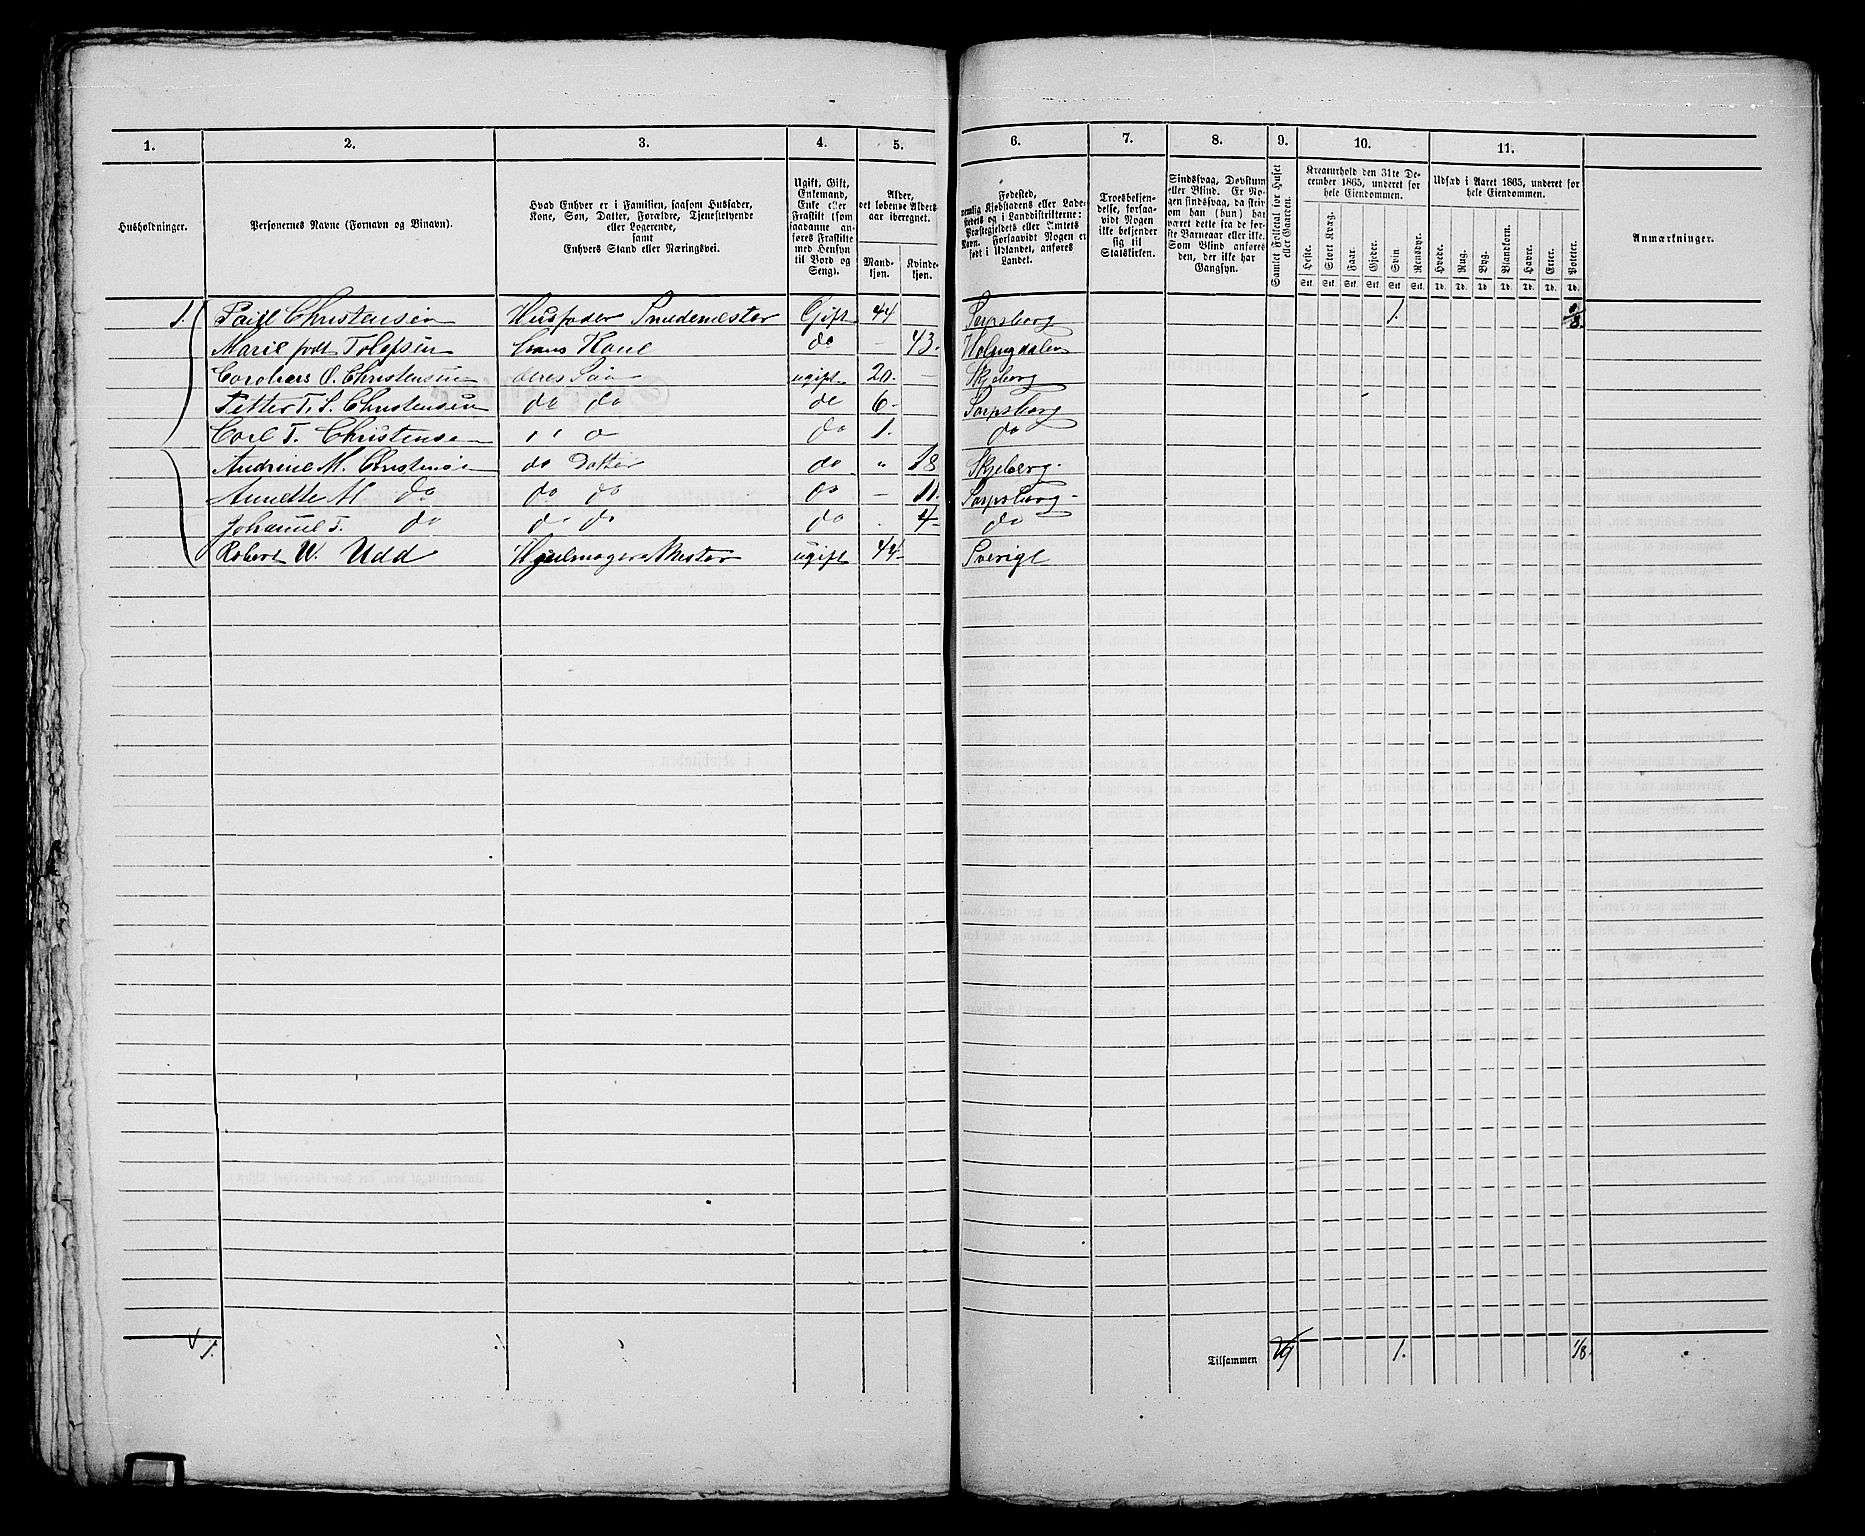 1. 2. 3. 4. 5. 6. 7. 8. 9. 10. 11.
Husholdninger.
Personernes Navne (Fornavn og Binavn).
Hvad Enhver er i Familien, saasom Husfader,
Kone, Søn, Datter, Forældre, Tjenestetyende
eller Logerende,
samt
Enhvers Stand eller Næringsvei.
Ugift, Gift,
Enkemand,
Enke eller
Fraskilt (som
saadanne an-
føres Fraskilte
med Hensyn
til Bord og
Seng).
Alder,
det løbende Alders-
aar iberegnet.
Mand-
kjøn.
Kvinde-
kjøn.
Fødested,
nemlig Kjøbstadens eller Lade-
stedets og i Landdistrikterne:
Præstegjeldets eller Amtets
Navn. Forsaavidt Nogen er
født i Udlandet, anføres
Landet.
Troesbekjen-
delse, forsaa-
vidt Nogen
ikke bekjender
sig til
Statskirken.
Sindssvag, Døvstum
eller Blind. Er No-
gen sindssvag, da skri-
om han (hun) har
været dette fra de før-
ste Barneaar eller ikke.
Som Blind anføres
den, der ikke har
Gangsyn.
Samlet Folketal for Huset
eller Gaarden.
Kreaturhold den 31te De-
cember 1865, underet for
hele Eiendommen.
Heste. Stort Kvæg. Faar. Gjeder. Svin. Rensdyr.
Stk. Stk. Stk. Stk. Stk. Stk.
Udsæd i Aaret 1865, underet for
hele Eiendommen.
Hvede. Rug. Byg. Blandkorn. Havre. Erter. Poteter.
Td. Td. Td. Td. Td. Td. Td.
Anmærkninger.
1. Paul Christensen Husfader Smedemester Gift 44 Sarpsborg 1. 1/8.
Marie født Tolefsen hans Kone do – 43.
O. Christensen deres Søn ugift 20. Skjeberg
Petter T. S. Christensen do do do 6 Sarpsborg
Carl T. Christensen do 1. do
Andrine M. Christensen do Datter do " 18 Skjeberg
Annette M. do do do do – 11. Sarpsborg
Johanne T. do do do do 4 do
Robert W. Udd Hjulmager Mester ugift 44 Sverige
1. Tilsammen 9 1. 1/8.